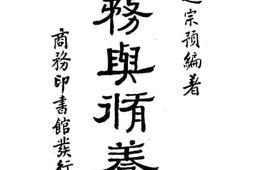 宗預編著
務與脩養
商務印書館發行